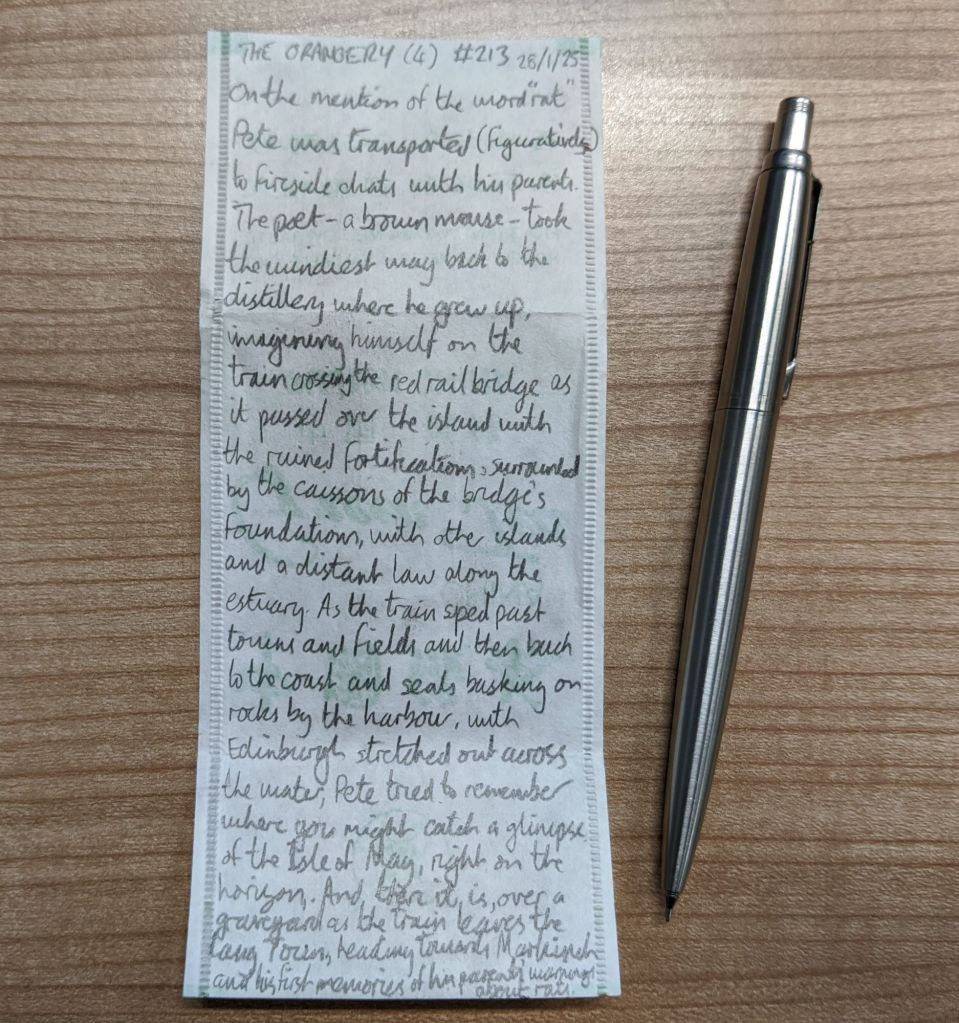 THE ORANGERY (4) #213 28/1/25
On the mention of the word "rat"
Pete was transported (figuratively)
to fireside chats with his parents.
The poet - a brown mouse - took
the windiest way back to the
distillery where he grew up,
imagining himself on the
train crossing the red rail bridge as
it passed over the island with
the ruined fortifications, surrounded
by the caissons of the bridge's
foundation, with other islands
and a distant law along the
estuary. As the train sped past
towns and fields and then back
to the coast and seals basking on
rocks by the harbour, with
Edinburgh stretched out across
the water, Pete tried to remember
where you might catch a glimpse
of the Isle of May, right on the
horizon. And, there it is, over a
graveyard as the train leaves the
Lang Toun, heading towards Markinch
and his first memories of his parents' warnings
about rats.